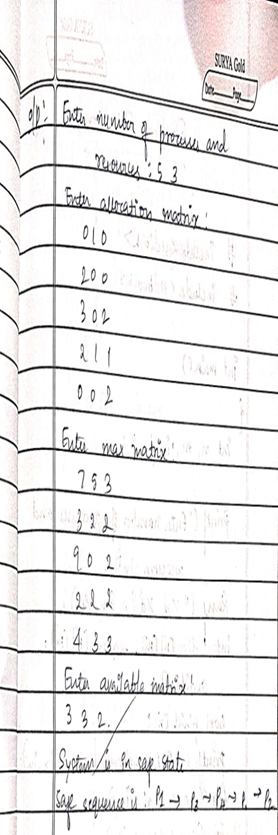 SURYA Gold
Date Page
o/p:
Enter number of processes and
resources : 5 3
Enter allocation matrix :
0 1 0
2 0 0
3 0 2
2 1 1
0 0 2
Enter max matrix
7 5 3
3 2 2
9 0 2
2 2 2
4 3 3
Enter available matrix
3 3 2.
System is in safe state
Safe sequence is : P1 → P3 → P4 → P. → P2